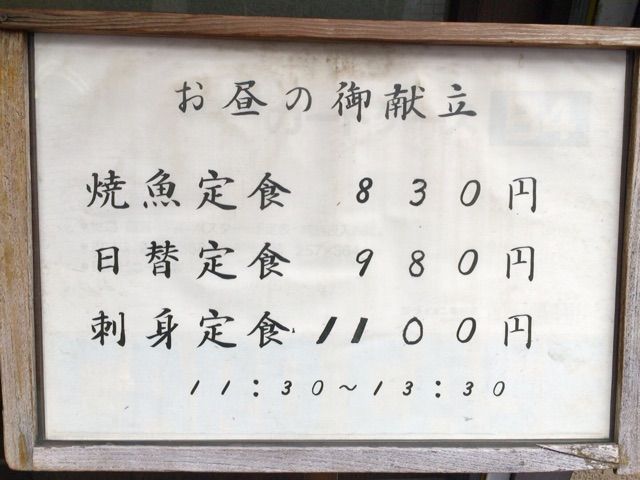 お昼の御献立
焼魚定食 830円
日替定食 980円
刺身定食 1100円
11:30~13:30